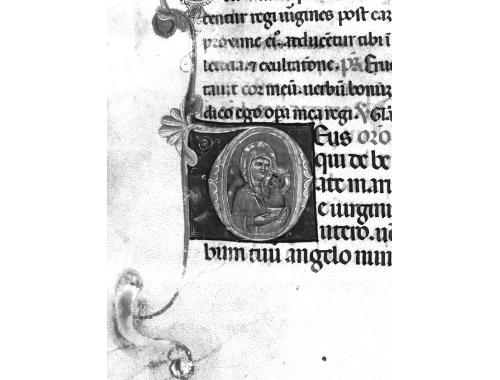 centur regi uirgines post eam
proxime ei⁹. afferentur tibi ĩ
leticia ⁊ exultatõne. p̃s. Eruc
tauit cor meũ. uerbũ bonum
dico ego oꝑa mea regi. V̾ Gl̃a
Deus oro
qui de be
ate mari
e uirgini
utero. uer
bum tuũ angelo nun